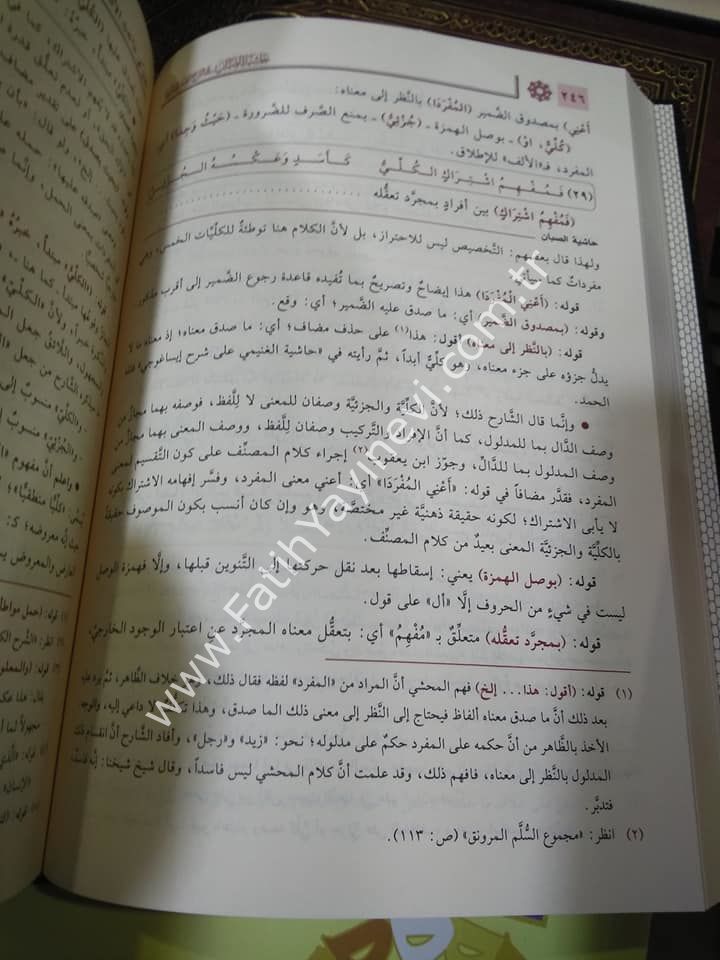 ٢٤٦
أَعْنِي) بمصدوق الضَّمير (المُفْرَدَا) بالنَّظر إلى معناه:
(كُلِّيٌّ، اوْ) ـ بوصل الهمزة ـ (جُزْئِيُّ) ـ بمنع الصَّرف للضَّرورة ـ (حَيْثُ وَجِدَا) أي:
المفرد، فـ«الألف» للإطلاق.
(٢٩) فَمُفْهِمُ اشْتِرَاكٍ الكُلِّيُّ كَأَسَدٍ وَعَكْسُهُ الجُزْئِيُّ
(فَمُفْهِمُ اشْتِرَاكٍ) بين أفرادٍ بمجرَّد تعقُّله
حاشية الصبان
ولهذا قال بعضهم: التَّخصيص ليس للاحتراز، بل لأنَّ الكلام هنا توطئةٌ للكلِّيَّات الخمس، وهي
مفرداتٌ كما سيأتي.
قوله: (أَعْنِي المُفْرَدَا) هذا إيضاحٌ وتصريحٌ بما تُفيده قاعدة رجوع الضَّمير إلى أقرب مذكور.
وقوله: (بمصدوق الضَّمير) أي: ما صدق عليه الضَّمير؛ أي: وقع.
قوله: (بالنَّظر إلى معناه) أقول: هذا(١) على حذف مضاف؛ أي: ما صدق معناه؛ إذ معناه ما لا
يدلُّ جزؤه على جزء معناه، وهو كلِّيٌّ أبداً، ثمَّ رأيته في «حاشية الغنيمي على شرح إيساغوجي» فلله
الحمد.
• وإنَّما قال الشَّارح ذلك؛ لأنَّ الكلِّيَّة والجزئيَّة وصفان للمعنى لا لِلَّفظ، فوصفه بهما مجازٌ من
وصف الدَّال بما للمدلول، كما أنَّ الإفراد والتَّركيب وصفان لِلَّفظ، ووصف المعنى بهما مجازٌ من
وصف المدلول بما للدَّالِّ، وجوَّز ابن يعقوب(٢) إجراء كلام المصنِّف على كون التَّقسيم لمعنى
المفرد، فقدَّر مضافاً في قوله: «أَعْني المُفْرَدَا» أي: أعني معنى المفرد، وفسَّر إفهامه الاشتراك بكونه
لا يأبى الاشتراك؛ لكونه حقيقة ذهنيَّة غير مختصَّة، وهو وإن كان أنسب بكون الموصوف حقيقةً
بالكلِّيَّة والجزئيَّة المعنى بعيدٌ من كلام المصنِّف.
قوله: (بوصل الهمزة) يعني: إسقاطها بعد نقل حركتها إلى التَّنوين قبلها، وإلَّا فهمزة الوصل
ليست في شيءٍ من الحروف إلَّا «أل» على قول.
قوله: (بمجرَّد تعقُّله) متعلِّقٌ بـ «مُفْهِمُ» أي: بتعقُّل معناه المجرَّد عن اعتبار الوجود الخارجيِّ،
(١) قوله: (أقول: هذا... إلخ) فهم المحشي أنَّ المراد من «المفرد» لفظه فقال ذلك، وهو خلاف الظَّاهر، ثمَّ يرد عليه
بعد ذلك أنَّ ما صدق معناه ألفاظ فيحتاج إلى النَّظر إلى معنى ذلك الما صدق، وهذا تكلُّف لا داعي إليه، والوجه
الأخذ بالظَّاهر من أنَّ حكمه على المفرد حكمٌ على مدلوله؛ نحو: «زيد» و«رجل»، وأفاد الشَّارح أنَّ انقسام ذلك
المدلول بالنَّظر إلى معناه، فافهم ذلك، وقد علمت أنَّ كلام المحشي ليس فاسداً، وقال شيخ شيخنا: إنَّه فاسد،
فتدبَّر.
(٢) انظر: «مجموع السُّلَّم المرونق» (ص: ١١٣).
www.FatihYayinevi.com.tr